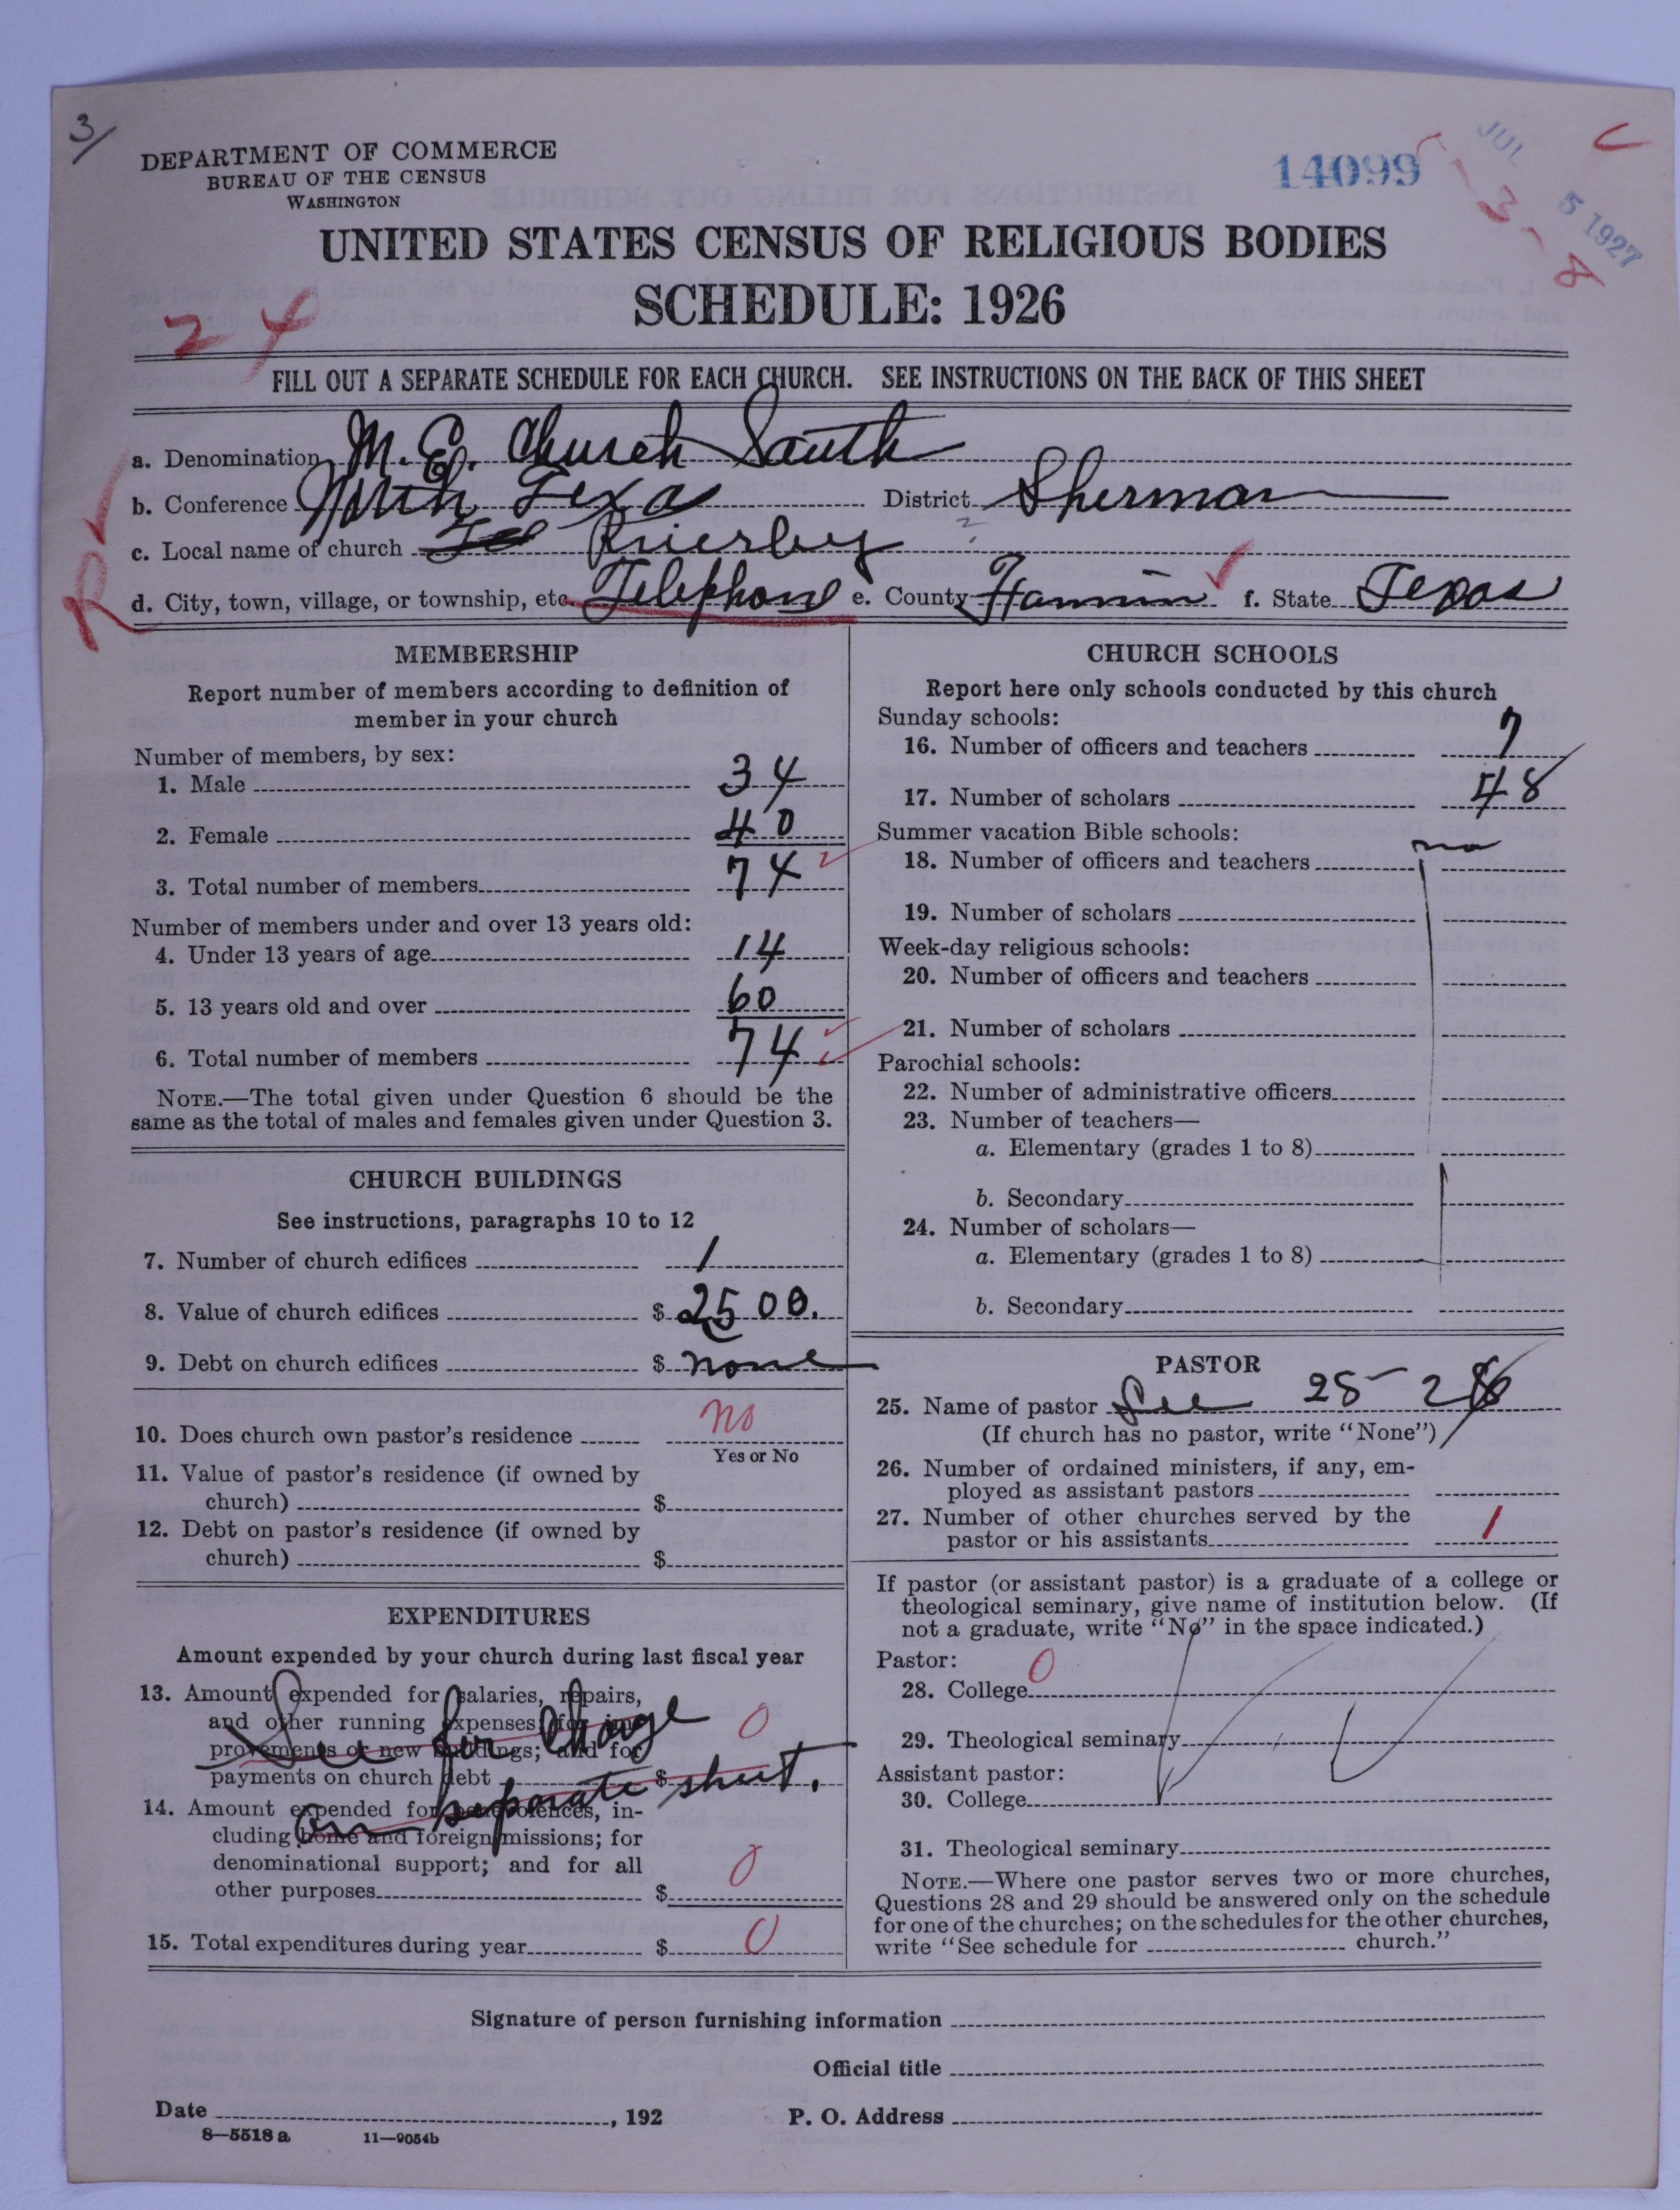 3/
DEPARTMENT OF COMMERCE
BUREAU OF THE CENSUS
WASHINGTON
14099
JUL 5 1927
3-8
UNITED STATES CENSUS OF RELIGIOUS BODIES
SCHEDULE: 1926
24
FILL OUT A SEPARATE SCHEDULE FOR EACH CHURCH. SEE INSTRUCTIONS ON THE BACK OF THIS SHEET
a. Denomination M. E. Church South
b. Conference North Texa District Sherman
c. Local name of church
d. City, town, village, or township, etc. Telephone e. County Fannin f. State Texas
R
MEMBERSHIP
Report number of members according to definition of
member in your church
Number of members, by sex:
1. Male 34
2. Female 40
3. Total number of members 74
Number of members under and over 13 years old:
4. Under 13 years of age 14
5. 13 years old and over 60
6. Total number of members 74
NOTE.—The total given under Question 6 should be the
same as the total of males and females given under Question 3.
CHURCH BUILDINGS
See instructions, paragraphs 10 to 12
7. Number of church edifices 1
8. Value of church edifices $ 2500.
9. Debt on church edifices $ none
10. Does church own pastor's residence no
Yes or No
11. Value of pastor's residence (if owned by
church) $
12. Debt on pastor's residence (if owned by
church) $
EXPENDITURES
Amount expended by your church during last fiscal year
13. Amount expended for salaries, repairs,
and other running expenses; for im-
provements or new buildings; and for
payments on church debt $ 0
See for Charge
on separate sheet.
14. Amount expended for benevolences, in-
cluding home and foreign missions; for
denominational support; and for all
other purposes $ 0
15. Total expenditures during year $ 0
CHURCH SCHOOLS
Report here only schools conducted by this church
Sunday schools:
16. Number of officers and teachers 7
17. Number of scholars 48
Summer vacation Bible schools:
18. Number of officers and teachers no
19. Number of scholars
Week-day religious schools:
20. Number of officers and teachers
21. Number of scholars
Parochial schools:
22. Number of administrative officers
23. Number of teachers—
a. Elementary (grades 1 to 8)
b. Secondary
24. Number of scholars—
a. Elementary (grades 1 to 8)
b. Secondary
PASTOR
25. Name of pastor See
(If church has no pastor, write "None")
26. Number of ordained ministers, if any, em-
ployed as assistant pastors
27. Number of other churches served by the
pastor or his assistants 1
If pastor (or assistant pastor) is a graduate of a college or
theological seminary, give name of institution below. (If
not a graduate, write "No" in the space indicated.)
Pastor:
28. College 0
29. Theological seminary
Assistant pastor:
30. College
31. Theological seminary
NOTE.—Where one pastor serves two or more churches,
Questions 28 and 29 should be answered only on the schedule
for one of the churches; on the schedules for the other churches,
write "See schedule for church."
Signature of person furnishing information
Official title
Date , 192 P. O. Address
8—5518 a 11—9054b